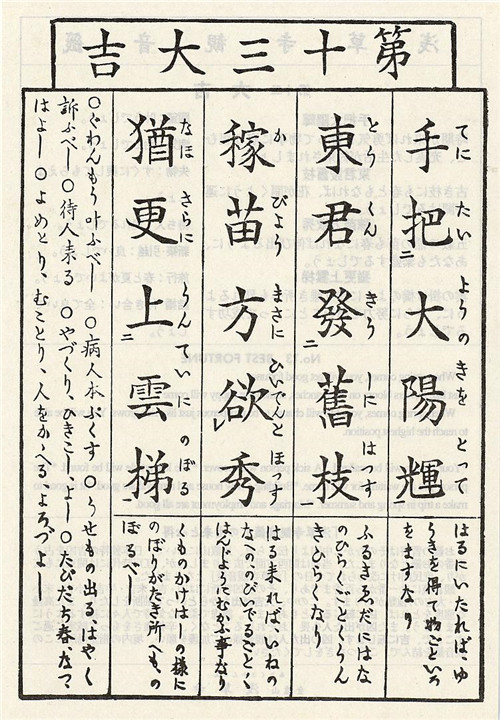 第十三大吉
手把大陽輝
てに たいようの きをとつて
はるにいたればこゆ
うきを得、物ごといろ
をますなり
東君發舊枝
とうくん きうしに はつす
ふるきゑだにはな
のひらくごとくうん
きひらくなり
稼苗方欲秀
かびよう まさに ひいでんと ほつす
はる来れば、いねの
なへののびいでるごとく
はんじようにむかふ事なり
猶更上雲梯
なほ さらに うんていに のぼる
くものかけはしの様に
のぼりがたき所へもの
ぼるべし
〇ぐわんもう叶ふべし 〇病人本ぷくす 〇うせもの出る、はやく
訴ふべし〇待人来る 〇やづくりひきこしよし〇たびだち春になつて
はよし〇よめとり、むことり、人をかゝへるよろづよし